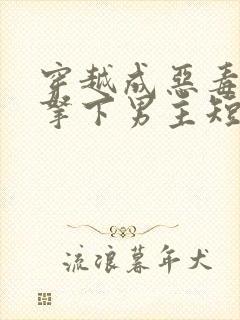 穿越成惡毒
拏下男主短
流浪暮年犬